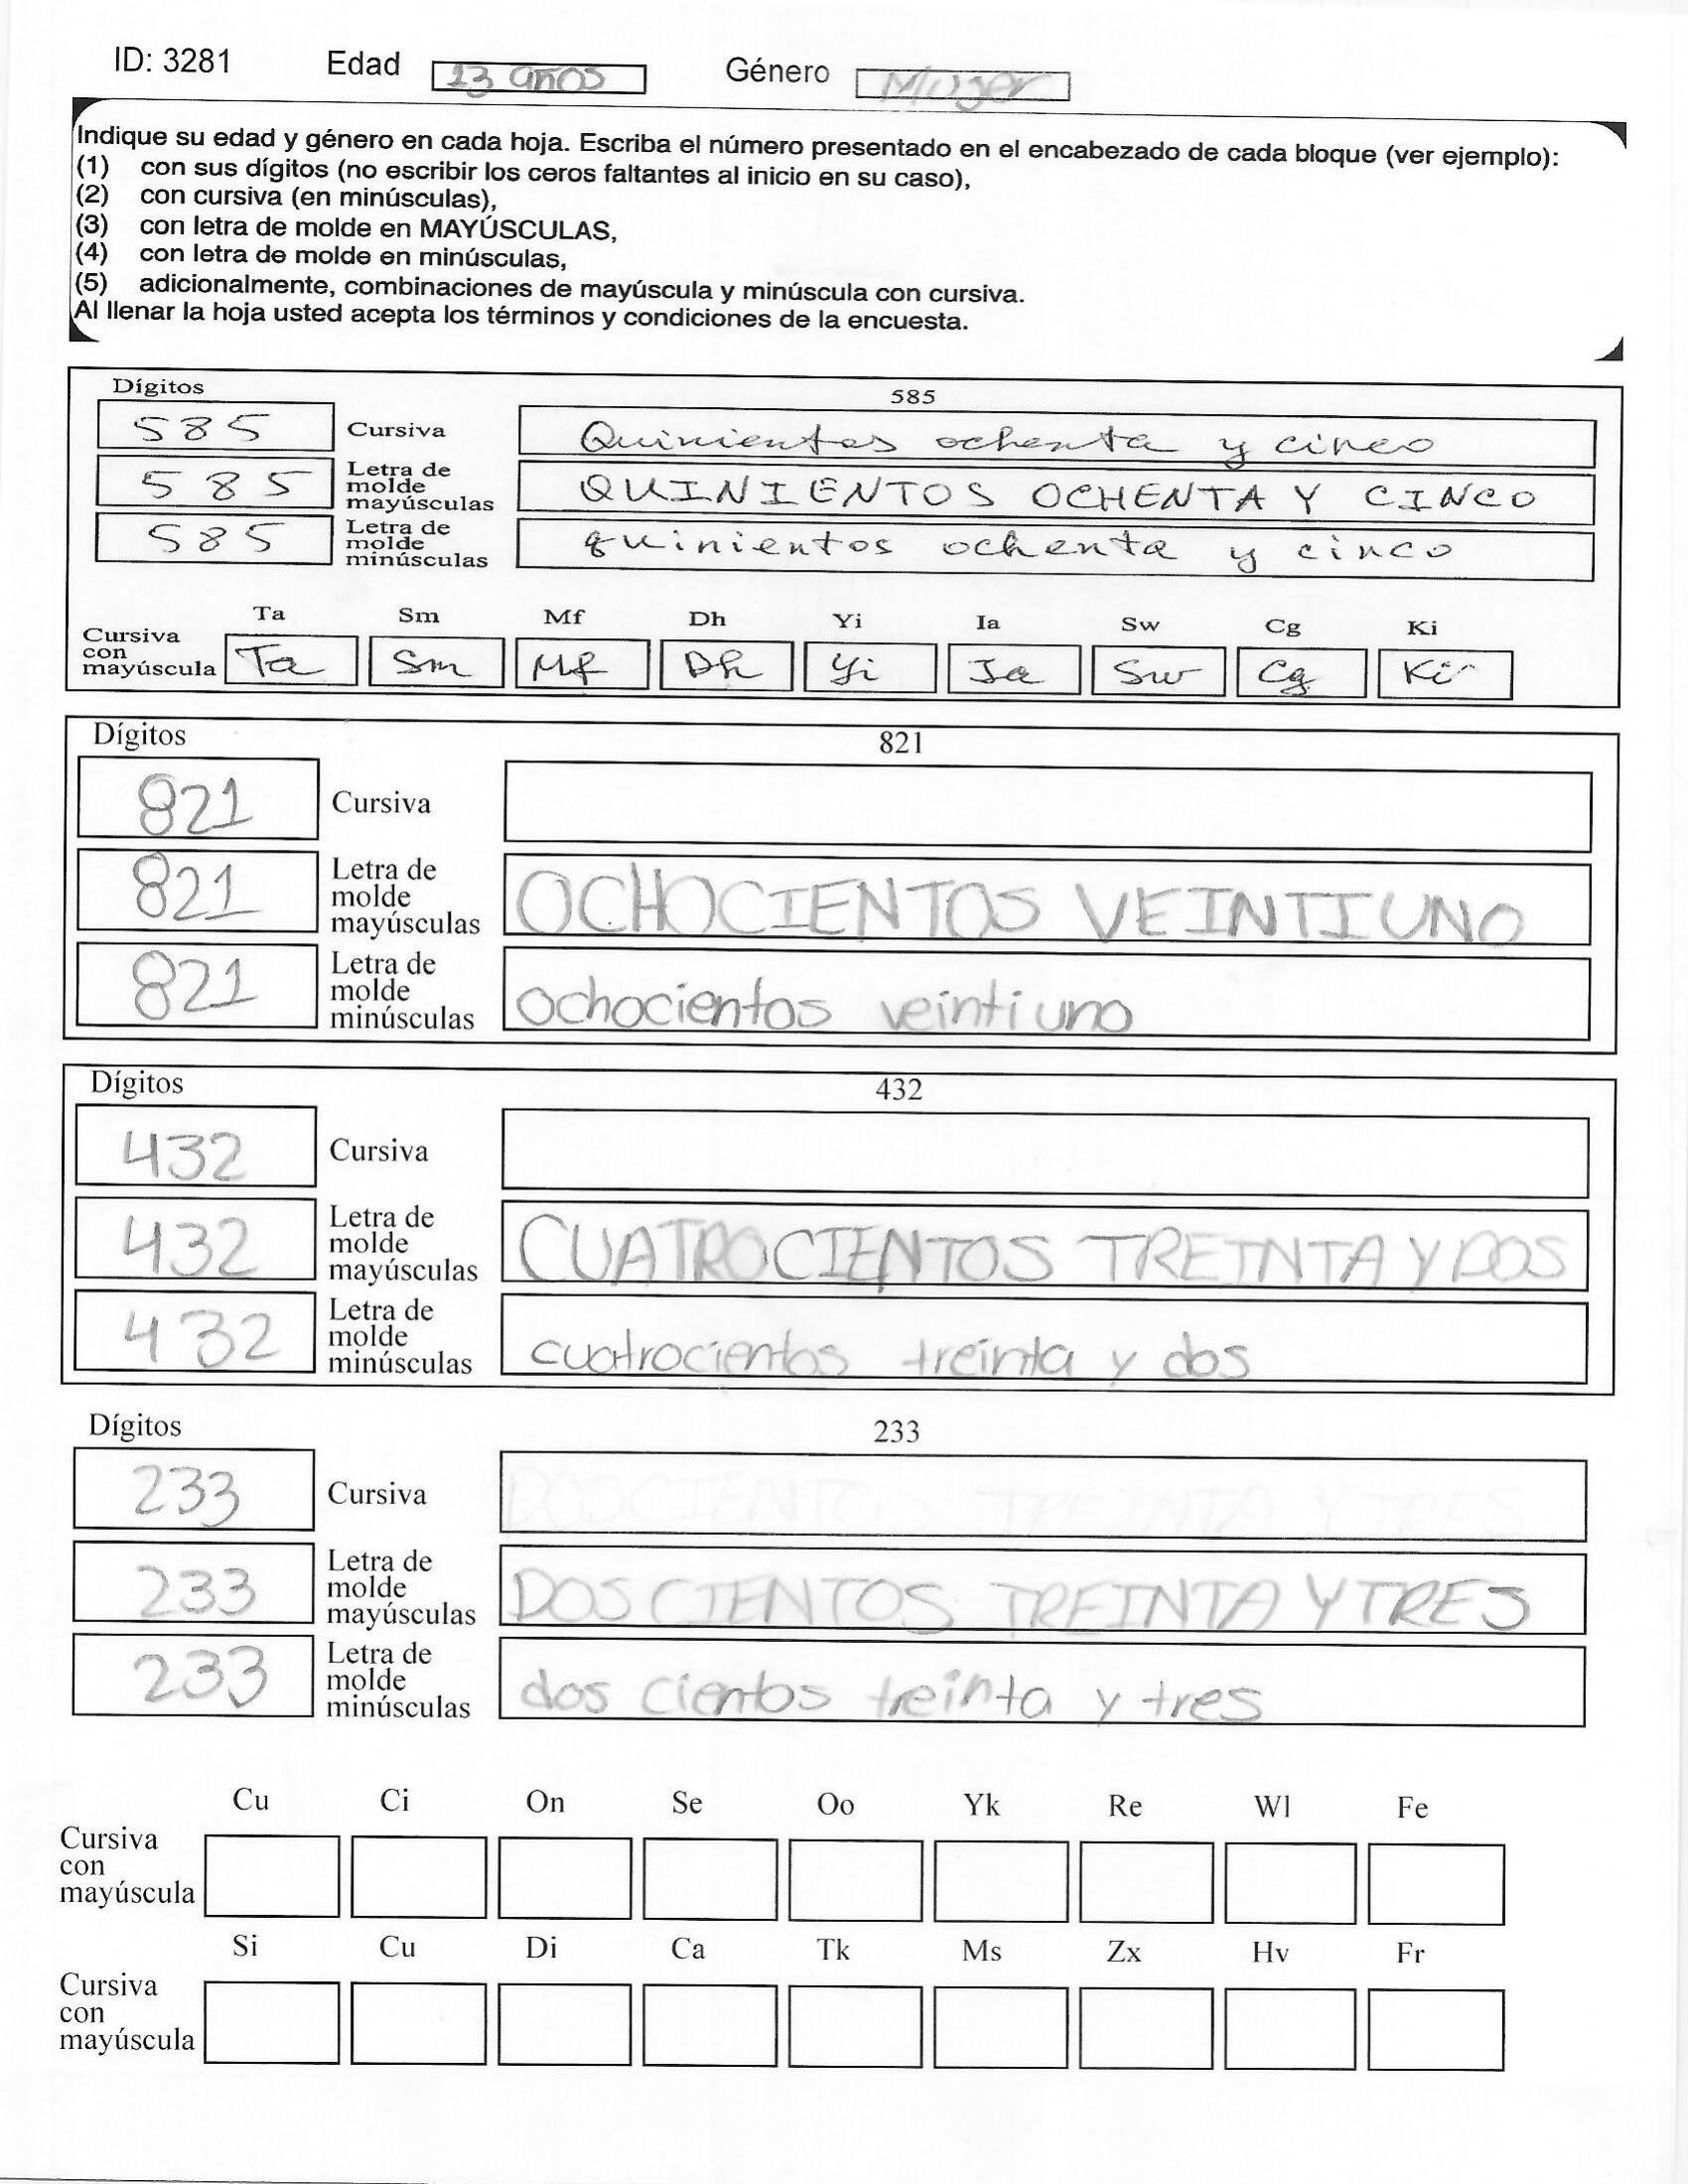 ID: 3281 Edad 13 años Género Muger
Indique su edad y género en cada hoja. Escriba el número presentado en el encabezado de cada bloque (ver ejemplo):
(1) con sus dígitos (no escribir los ceros faltantes al inicio en su caso),
(2) con cursiva (en minúsculas),
(3) con letra de molde en MAYÚSCULAS,
(4) con letra de molde en minúsculas,
(5) adicionalmente, combinaciones de mayúscula y minúscula con cursiva.
Al llenar la hoja usted acepta los términos y condiciones de la encuesta.
Dígitos 585
585 Cursiva Quinientos ochenta y cinco
585 Letra de molde mayúsculas QUINIENTOS OCHENTA Y CINCO
585 Letra de molde minúsculas quinientos ochenta y cinco
Ta Sm Mf Dh Yi Ia Sw Cg Ki
Cursiva con mayúscula Ta Sm Mf Dh Yi Ia Sw Cg Ki
Dígitos 821
821 Cursiva
821 Letra de molde mayúsculas OCHOCIENTOS VEINTIUNO
821 Letra de molde minúsculas ochocientos veintiuno
Dígitos 432
432 Cursiva
432 Letra de molde mayúsculas CUATROCIENTOS TREINTA Y DOS
432 Letra de molde minúsculas cuatrocientos treinta y dos
Dígitos 233
233 Cursiva DOSCIENTOS TREINTA Y TRES
233 Letra de molde mayúsculas DOSCIENTOS TREINTA Y TRES
233 Letra de molde minúsculas dos cientos treinta y tres
Cu Ci On Se Oo Yk Re Wl Fe
Cursiva con mayúscula
Si Cu Di Ca Tk Ms Zx Hv Fr
Cursiva con mayúscula